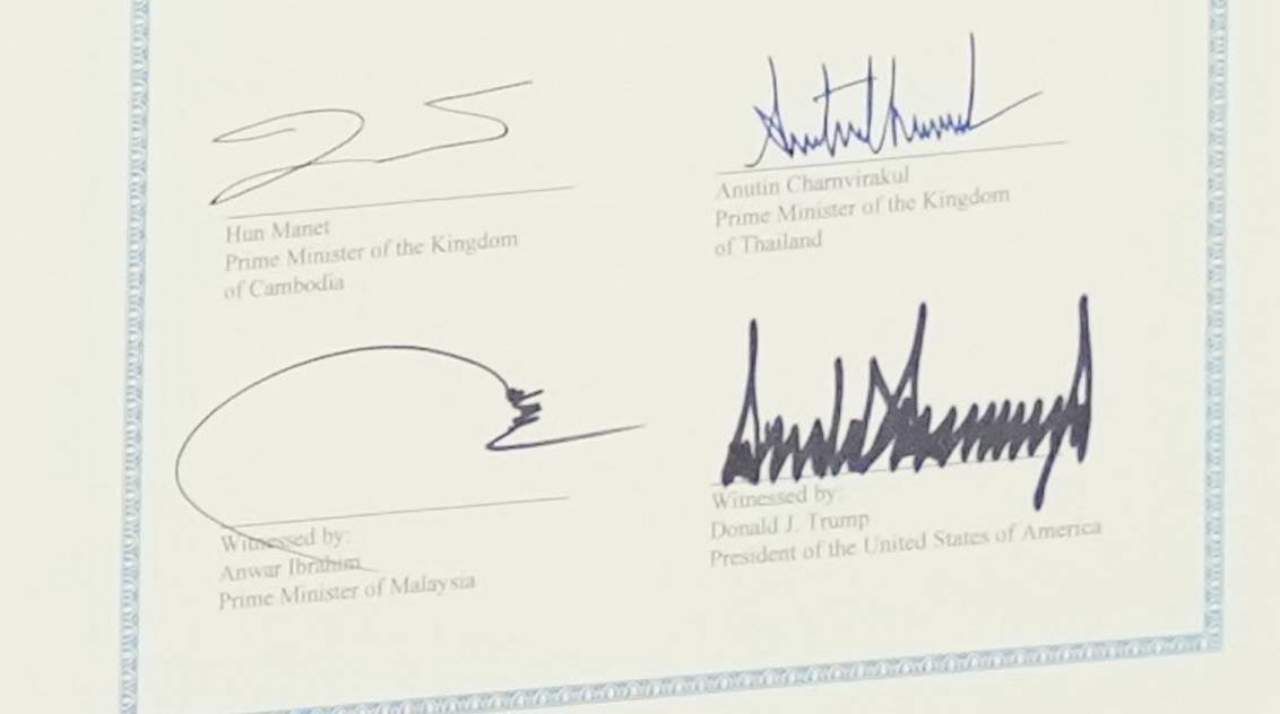 Hun Manet
Prime Minister of the Kingdom
of Cambodia
Anutin Charnvirakul
Prime Minister of the Kingdom
of Thailand
Witnessed by:
Anwar Ibrahim
Prime Minister of Malaysia
Witnessed by:
Donald J. Trump
President of the United States of America